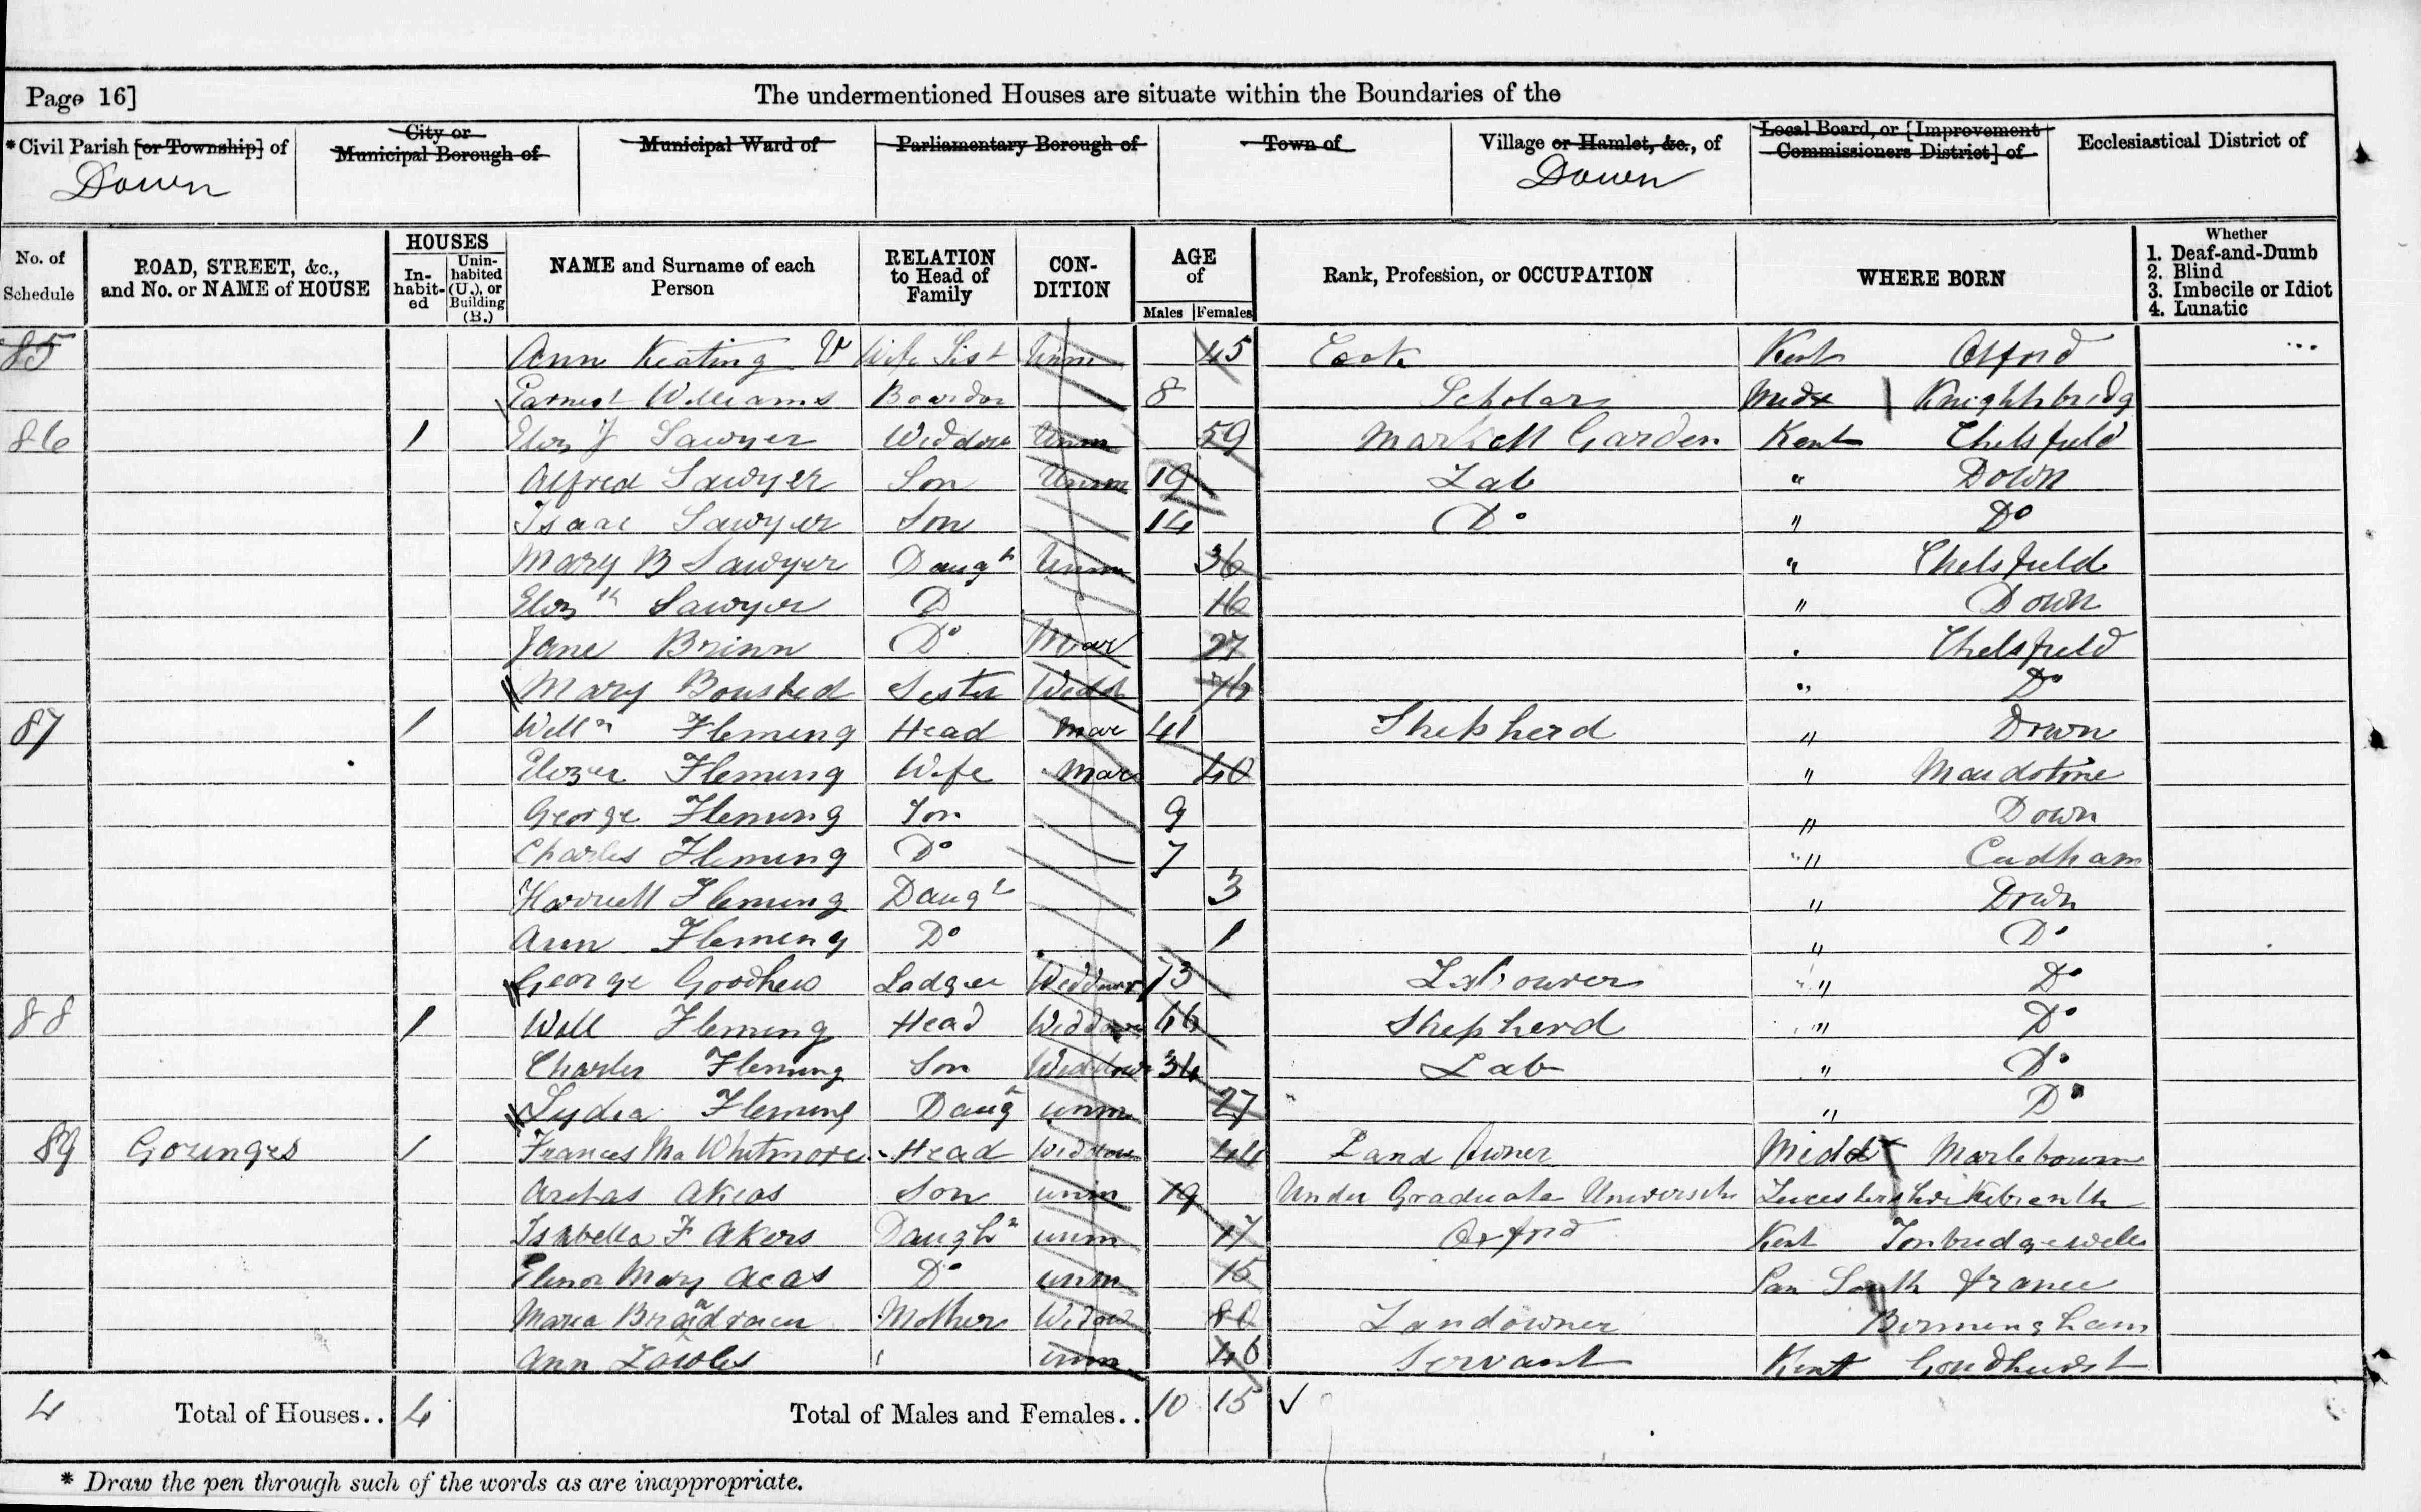 Page 16] The undermentioned Houses are situate within the Boundaries of the
*Civil Parish [or Township] of City or Municipal Borough of Municipal Ward of Parliamentary Borough of Town of Village or Hamlet, &c., of Local Board, or [Improvement Commissioners District] of Ecclesiastical District of
Down Down
No. of Schedule ROAD, STREET, &c., and No. or NAME of HOUSE HOUSES Inhabited Uninhabited (U.), or Building (B.) NAME and Surname of each Person RELATION to Head of Family CONDITION AGE of Males Females Rank, Profession, or OCCUPATION WHERE BORN Whether 1. Deaf-and-Dumb 2. Blind 3. Imbecile or Idiot 4. Lunatic
85 Ann Keating Wife Sist Unm 45 Cook Kent
Earnest Williams Boarder 8 Scholar Midx Knightsbridg
86 1 Sawyer Widdow Unm 59 Markett Garden Kent Chelsfield
Alfred Sawyer Son Unm 19 Lab " Down
Isaac Sawyer Son 14 Do " Do
Mary B Sawyer Daugh Unm 36 " Chelsfield
Elizth Sawyer D 16 " Down
Jane Brinn Do Mar 27 " Chelsfield
Mary Bousted Sister 76 " Do
87 1 Willm Fleming Head Mar 41 Shepherd " Down
Fleming Wife Mar 40 " Maidstone
George Fleming Son 9 " Down
Charles Fleming Do 7 " Cudham
Harriett Fleming Daugr 3 " Down
Ann Fleming Do 1 " Do
George Goodhew Lodger Widdower 73 Labourer " Do
88 1 Will Fleming Head Widdower 46 Shepherd " Do
Charles Fleming Son Widdower 34 Lab " Do
Lydia Fleming Daugh unm 27 " Do
89 Gorringes 1 Frances Ma Whitmore Head Widdow 44 Land Owner Middx Marlebourn
Son unm 19 Under Graduate Universit
Isabella F Akers Daughr unm 17 Oxford Kent Tonbridge wells
Elenor Mary Do unm 15 Pau South france
Maria Mother Widow 80 Landowner Birmingham
Ann unm 46 Servant Kent Goudhurst
4 Total of Houses.. 4 Total of Males and Females.. 10 15
* Draw the pen through such of the words as are inappropriate.